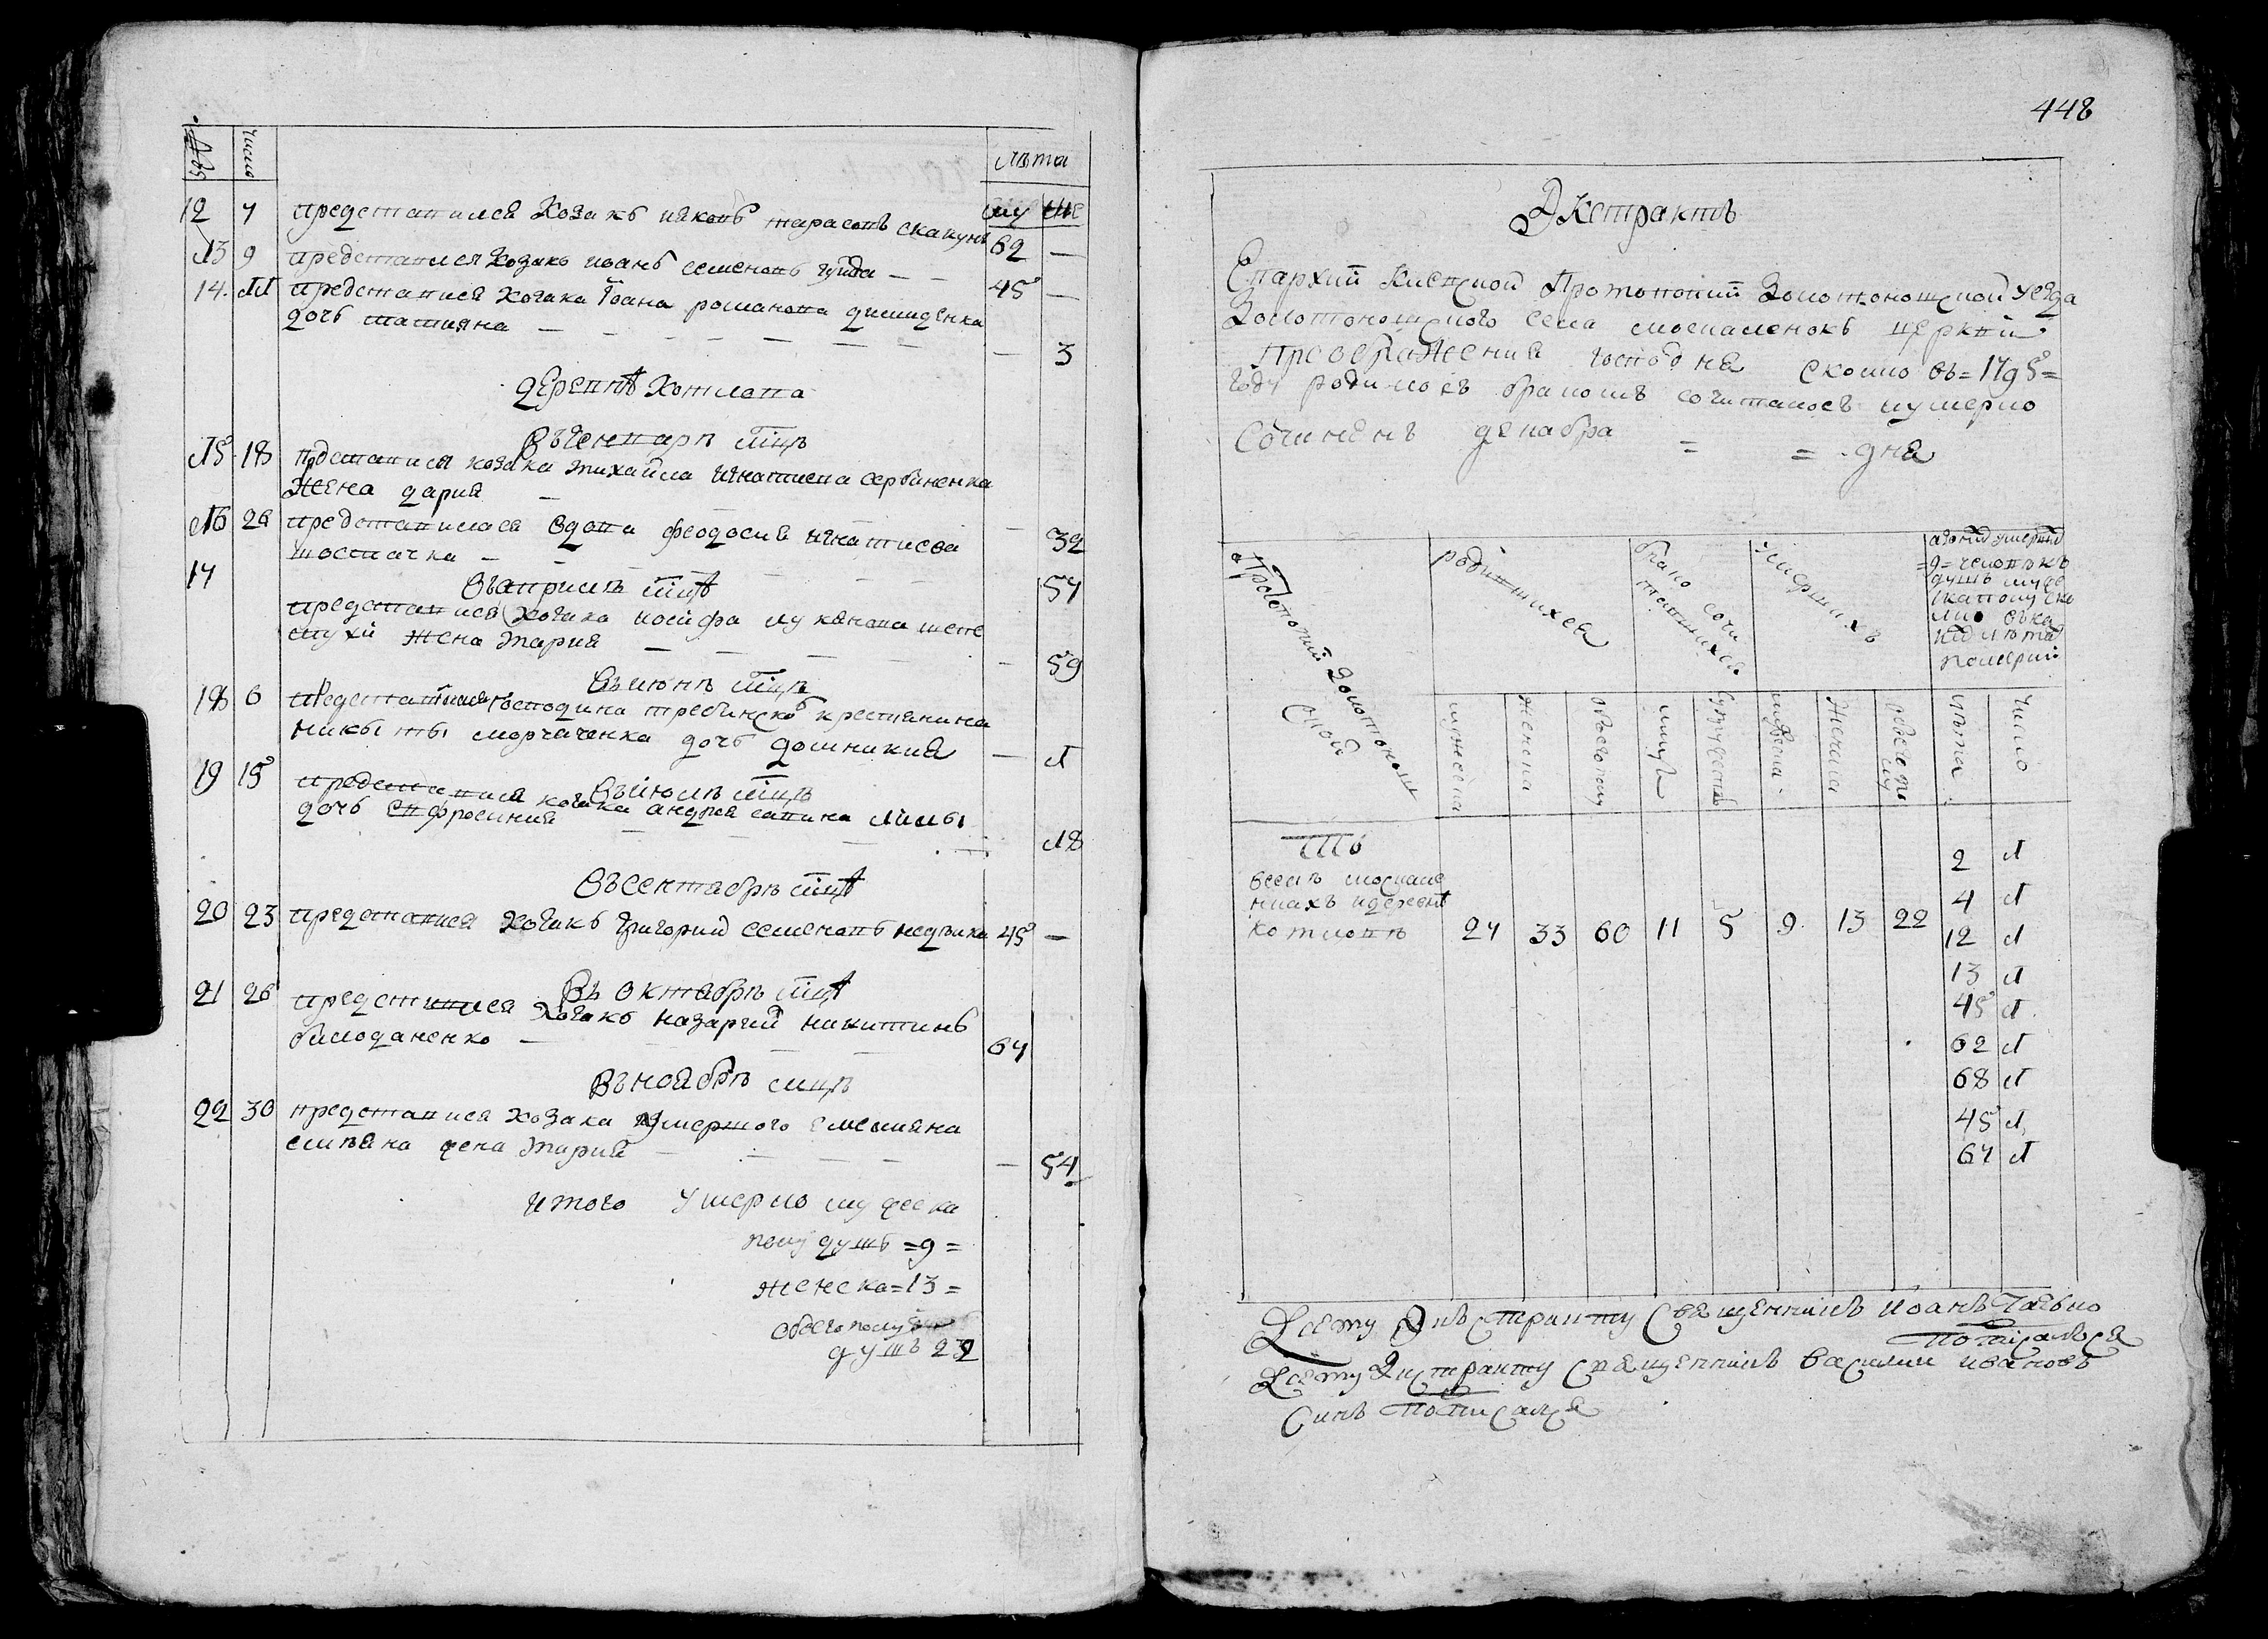 Числа
лѣта
му же
12 7 представился Козакъ ияковъ тарасовъ скакунъ 62 —
13 9 представися Козакъ иванъ семеновъ гуйда — — 45 —
14. 11 представися козака Іоана романова димиденка
дочь татияна — — — — — — — 3
деревнѣ Хотлова
Въ Генварѣ мцѣ
15 18 представися козака михайла игнатиева сербиненка
Жена дария — — 32
16 26 представиласа вдова феодосия игнатиева
шостачка — — — 57
Въ априлѣ мцѣ
17 представися козака иосифа лукянова шепе
тухи жена Мария — — — — 59
Въ июнѣ мцѣ
18 6 представися господина требинско крестянина
никыты морчаченка дочь домникия — 1
Въ июлѣ мцѣ
19 15 представися козака андрея савина лимы
дочь евфросиния — — — 18
Въ сентабрѣ мцѣ
20 23 представися козакъ григорий семеновъ недѣлка 45 —
Въ октабрѣ мцѣ
21 26 представися козакъ назарий никитинъ
билоданенко — — — 67
Въ ноябрѣ мцѣ
22 30 представися козака умершого емелияна
емеляна жена мария — — — — — 54
итого умерло мужеска
полу душъ =9=
женска =13=
обоего полу
душъ 22
448
Экстрактъ
Епархии Киевской Протопопии Золотоношской уезда
Золотоношского села москаленокъ церкви
Преображения Господня сколко въ =1795=
году родилось бракомъ сочиталось иумерло
Сочиненъ декабра = = дня
Протопопии Золотонош
ской
родившихся
брако сочи
тавшихся
умершихъ
=9= человѣкъ
душъ муже
ска полу
лѣта
померли
мужеска
Женска
обоего полу
мужъ
супружествъ
мужеска
Женска
обоего по
лу
лѣта
Число
въ
селѣ москале
нкахъ идеревнѣ
котловѣ 27 33 60 11 5 9 13 22
2 1
4 1
12 1
13 1
45 1
62 1
68 1
45 1
67 1
Ксему Экстракту Священникъ Иоанъ
потписалъся
Ксему Экстракту священникъ василий ивановъ
синъ потписалься